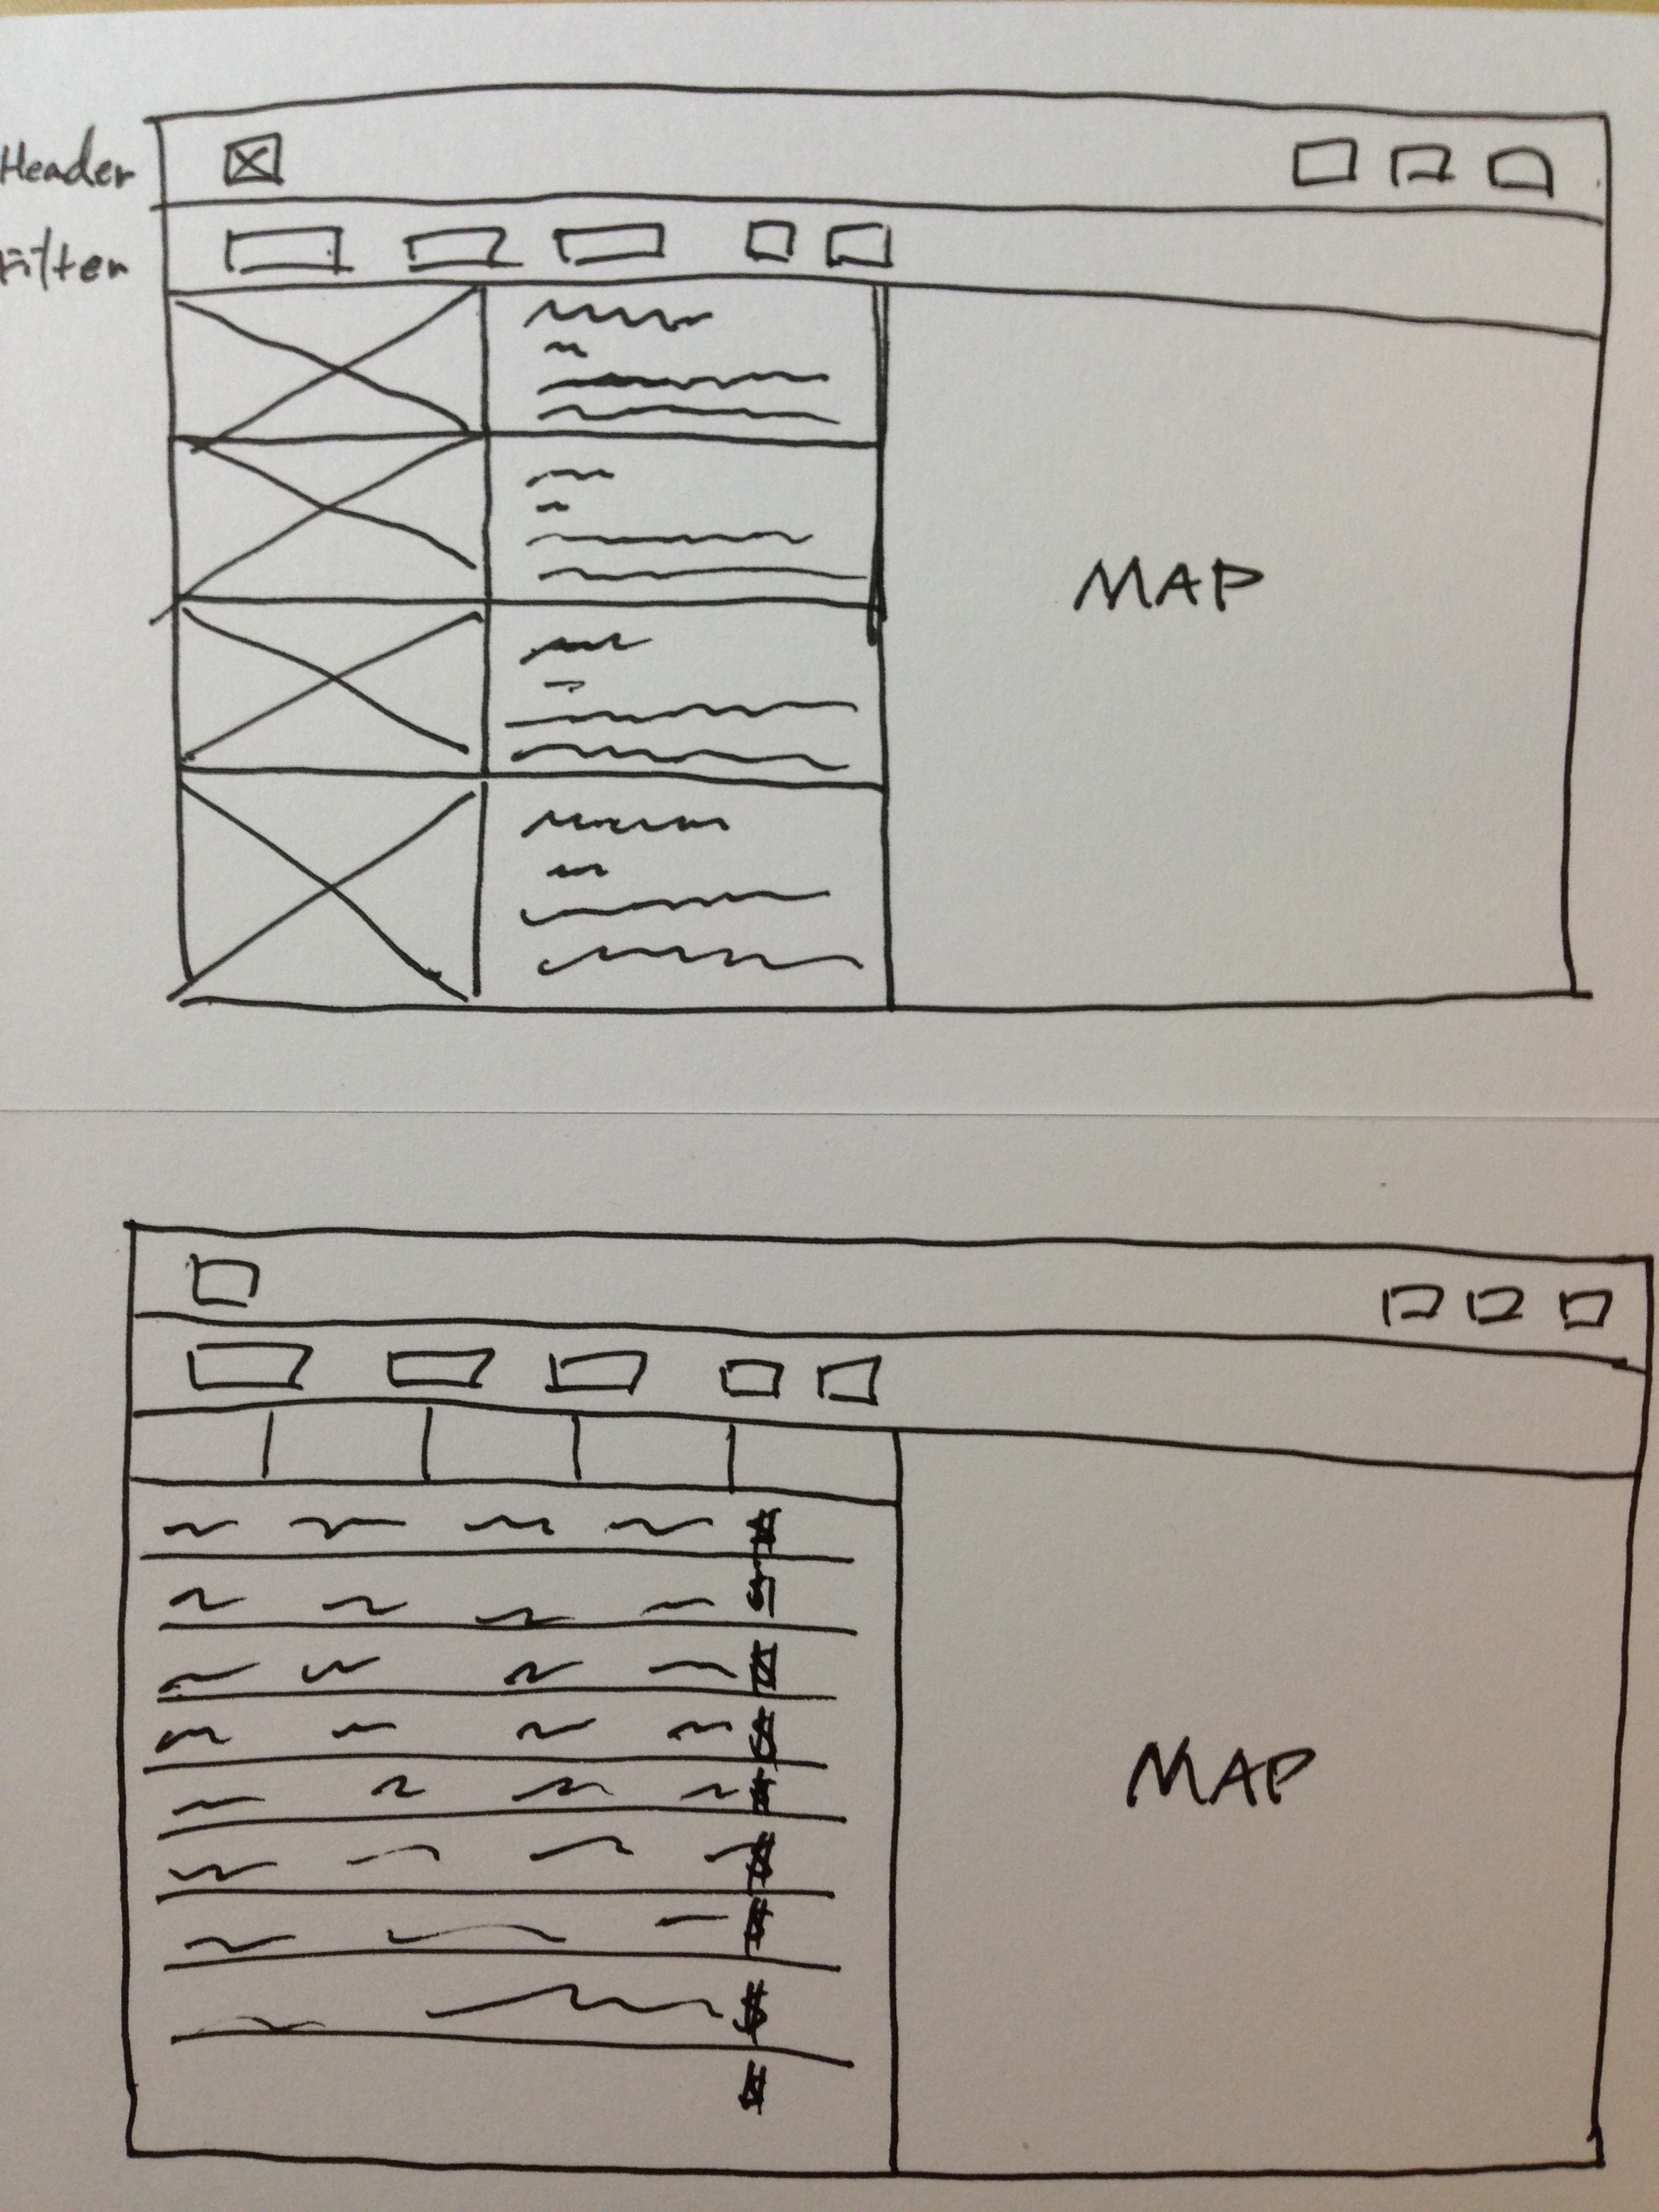 Header
Filter
MAP
MAP